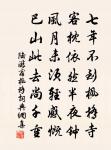 七年不到楓橋寺
客枕依然半夜鐘
風月未須輕感慨
巴山此去尚千重
陸游宿楓橋詩